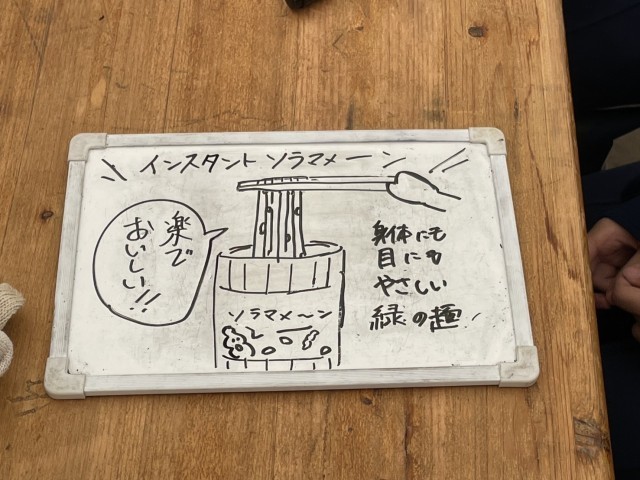 インスタント ソラマメーン
楽で
おいしい!!
ソラマメ〜ン
身体にも
目にも
やさしい
緑の麺!